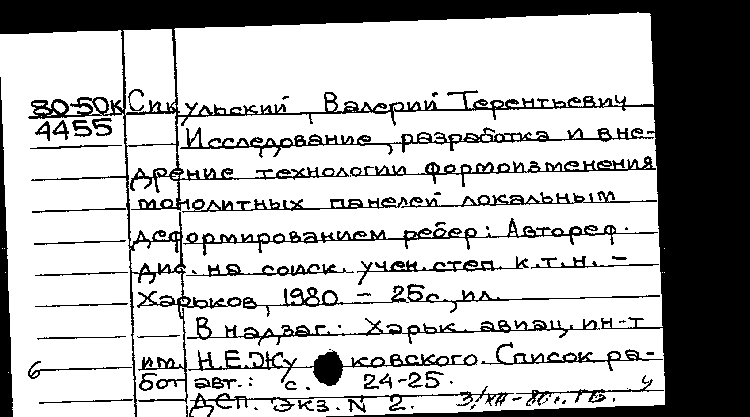 80-50к Сикульский, Валерий Терентьевич
4455
Исследование, разработка и вне-
дрение технологии формоизменения
монолитных панелей локальным
деформированием ребер: Автореф.
дис. на соиск. учен. степ. к.т.н. –
Харьков, 1980. – 25с., ил.
В надзаг.: Харьк. авиац. ин-т
6 им. Н.Е.Жуковского. Список ра-
бот авт.: с. 24-25.
ДСП. Экз. N 2.